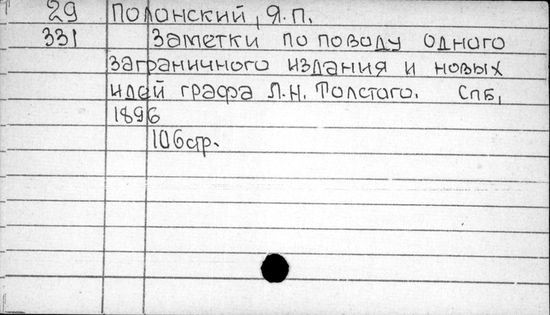 29 Полонский, Я.П.
331 Заметки по поводу одного
заграничного издания и новых
идей графа Л.Н. Толстого. Спб,
1896
106стр.